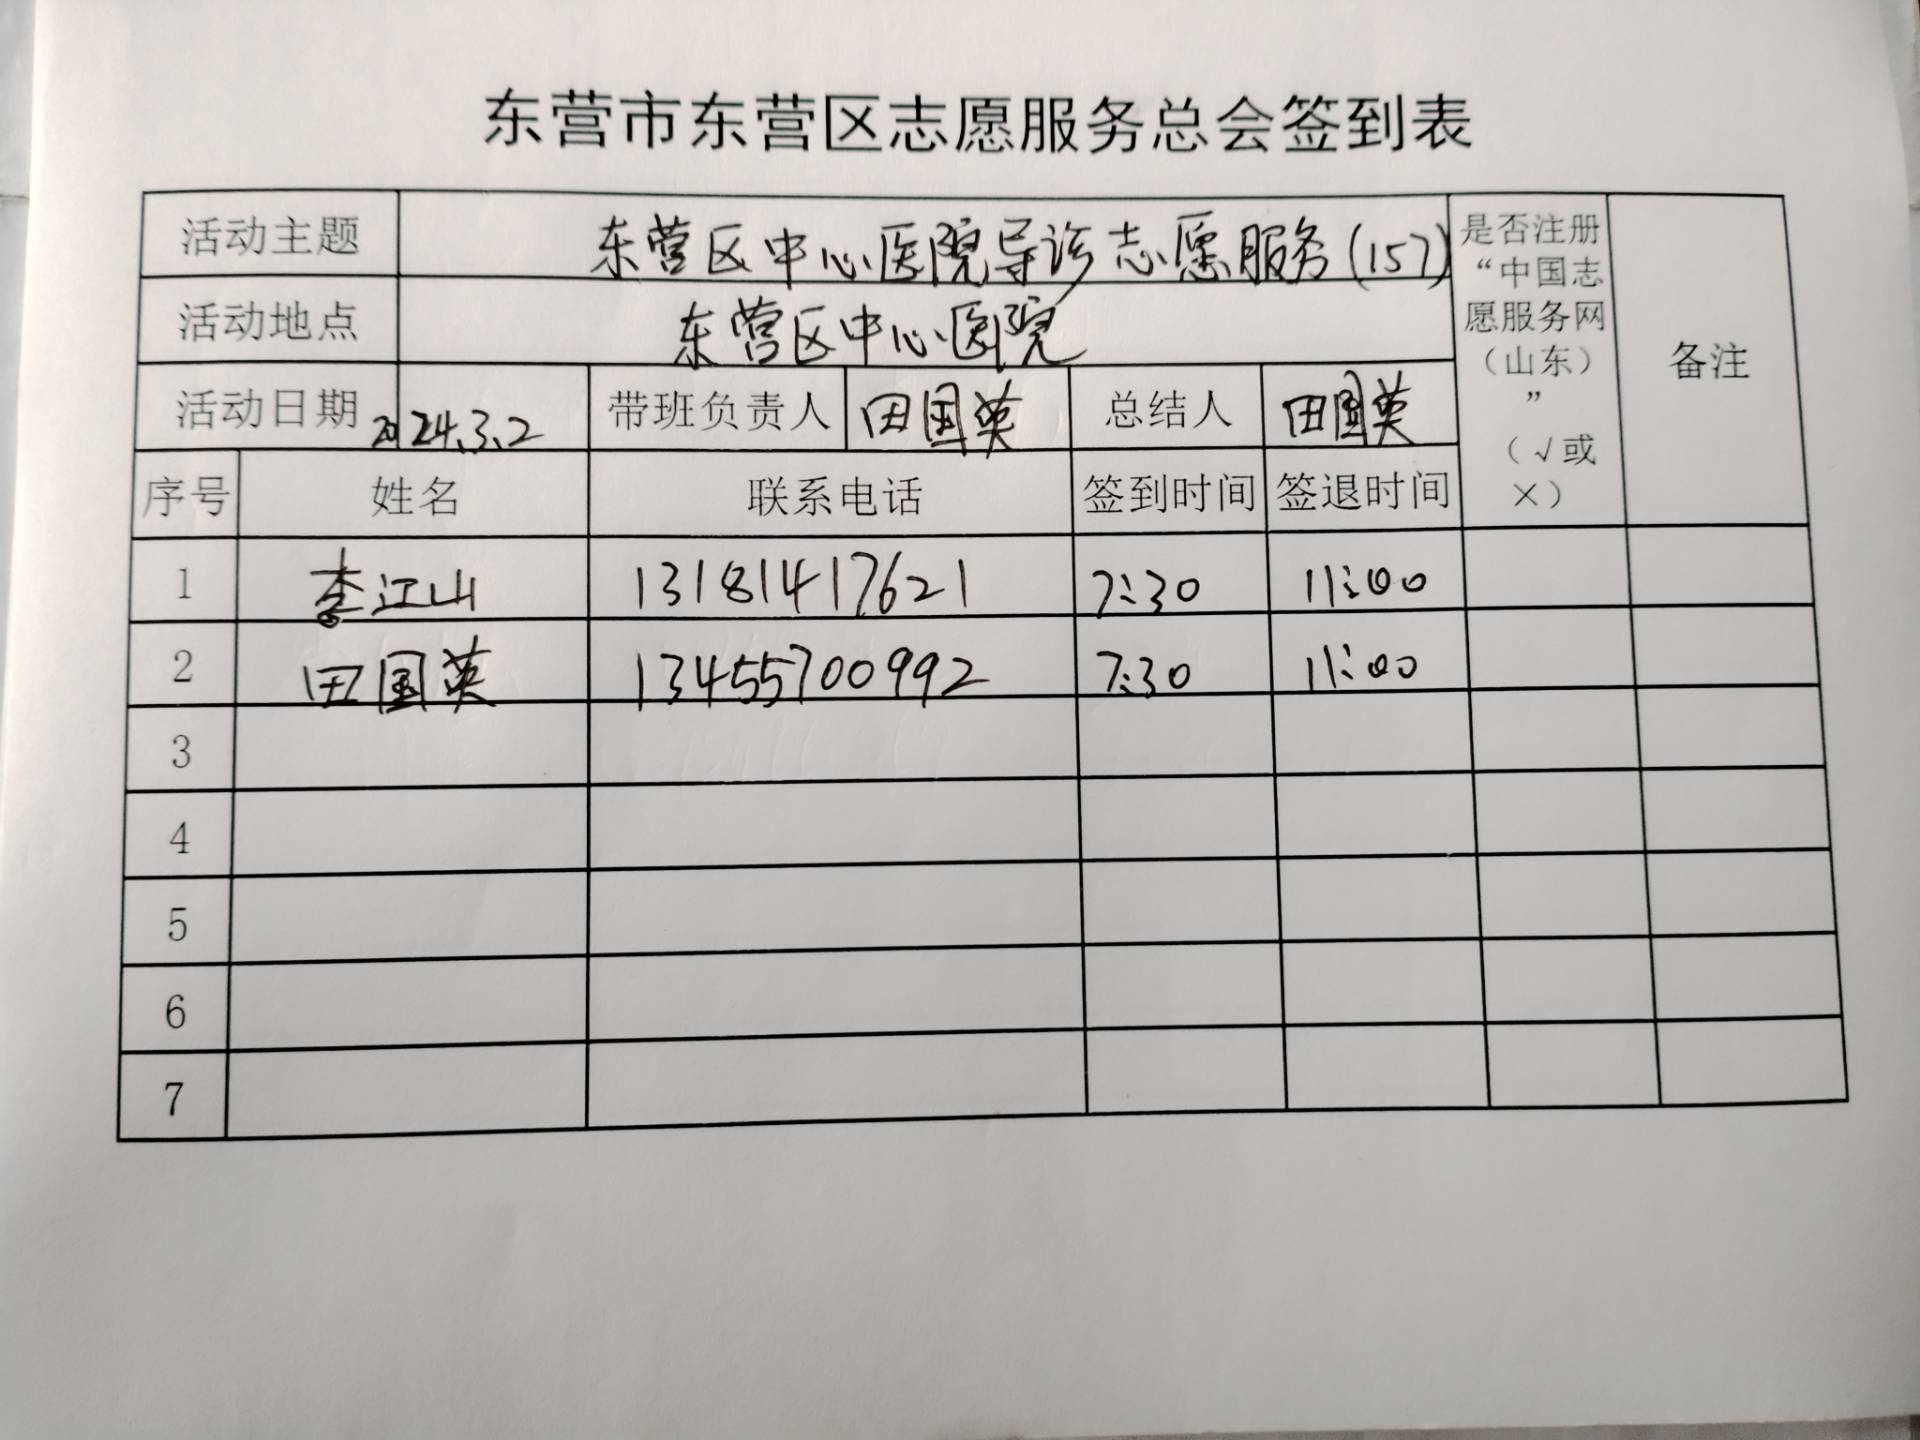 东营市东营区志愿服务总会签到表
活动主题 东营区中心医院导诊志愿服务(157) 是否注册“中国志愿服务网（山东）”（√或×） 备注
活动地点 东营区中心医院
活动日期 2024.3.2 带班负责人 田国英 总结人 田国英
序号 姓名 联系电话 签到时间 签退时间
1 李江山 13181417621 7:30 11:00
2 田国英 13455700992 7:30 11:00
3
4
5
6
7